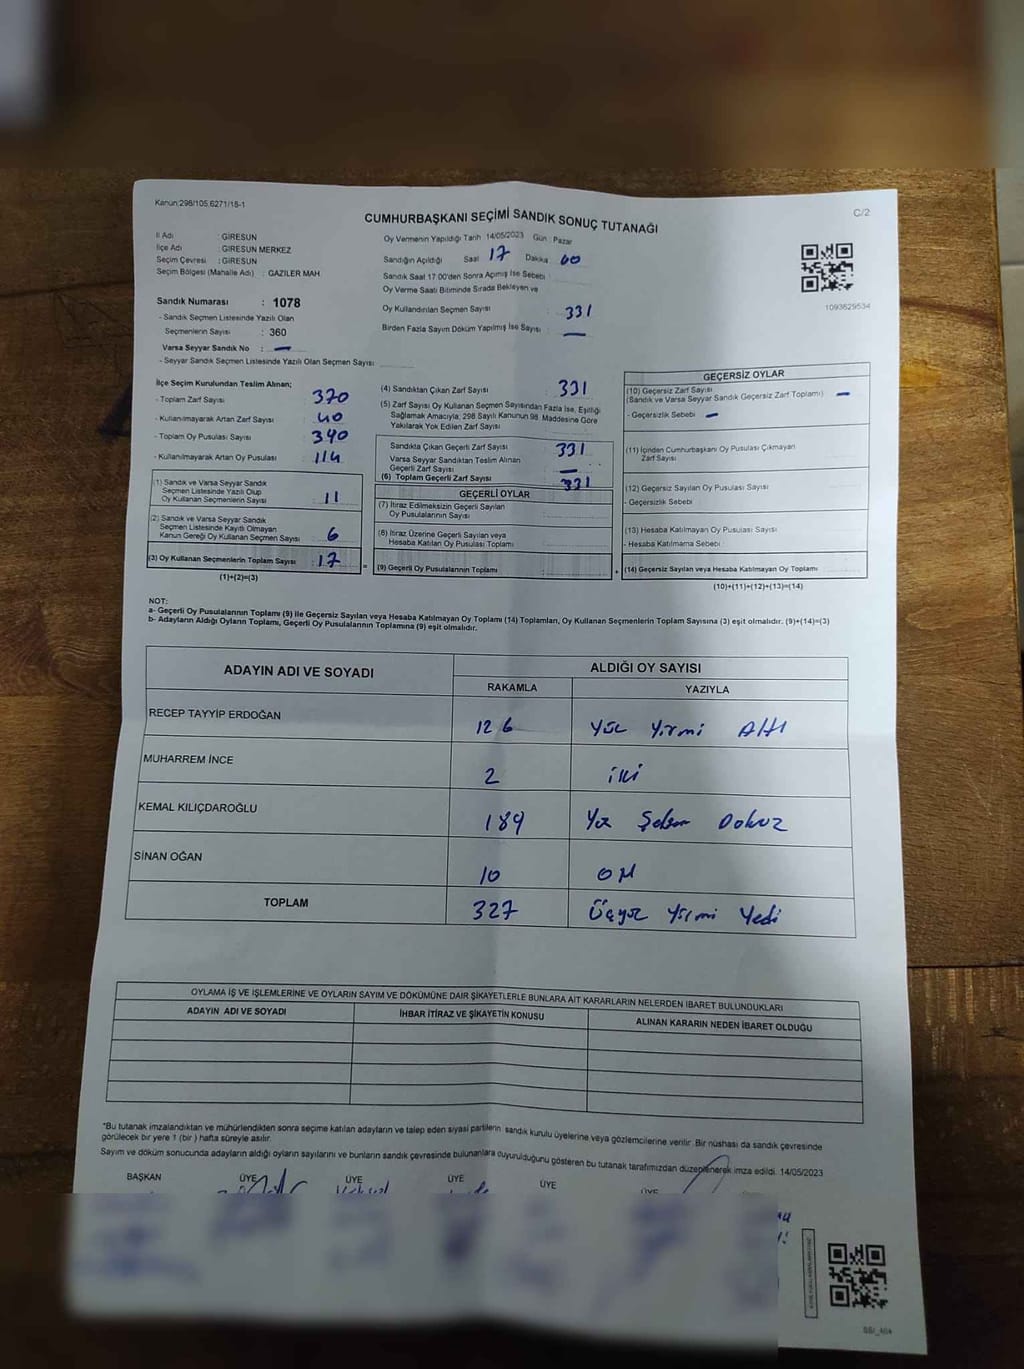 Kanun:298/105,6271/18-1
CUMHURBAŞKANI SEÇİMİ SANDIK SONUÇ TUTANAĞI
C/2
İl Adı : GİRESUN
İlçe Adı : GİRESUN MERKEZ
Seçim Çevresi : GİRESUN
Seçim Bölgesi (Mahalle Adı) : GAZİLER MAH
Sandık Numarası : 1078
- Sandık Seçmen Listesinde Yazılı Olan
Seçmenlerin Sayısı : 360
Varsa Seyyar Sandık No : —
- Seyyar Sandık Seçmen Listesinde Yazılı Olan Seçmen Sayısı
Oy Vermenin Yapıldığı Tarih 14/05/2023 Gün : Pazar
Sandığın Açıldığı Saat 17 Dakika 00
Sandık Saat 17:00'den Sonra Açılmış İse Sebebi
Oy Verme Saati Bitiminde Sırada Bekleyen ve
Oy Kullandırılan Seçmen Sayısı : 331
Birden Fazla Sayım Döküm Yapılmış İse Sayısı : —
1093629534
İlçe Seçim Kurulundan Teslim Alınan;
- Toplam Zarf Sayısı 370
- Kullanılmayarak Artan Zarf Sayısı 40
- Toplam Oy Pusulası Sayısı 340
- Kullanılmayarak Artan Oy Pusulası 114
(1) Sandık ve Varsa Seyyar Sandık
Seçmen Listesinde Yazılı Olup
Oy Kullanan Seçmenlerin Sayısı 11
(2) Sandık ve Varsa Seyyar Sandık
Seçmen Listesinde Kayıtlı Olmayan
Kanun Gereği Oy Kullanan Seçmen Sayısı 6
(3) Oy Kullanan Seçmenlerin Toplam Sayısı : 17
(1)+(2)=(3)
(4) Sandıktan Çıkan Zarf Sayısı 331
(5) Zarf Sayısı Oy Kullanan Seçmen Sayısından Fazla İse, Eşitliği
Sağlamak Amacıyla; 298 Sayılı Kanunun 98. Maddesine Göre
Yakılarak Yok Edilen Zarf Sayısı
Sandıkta Çıkan Geçerli Zarf Sayısı 331
Varsa Seyyar Sandıktan Teslim Alınan
Geçerli Zarf Sayısı —
(6) Toplam Geçerli Zarf Sayısı 331
GEÇERLİ OYLAR
(7) İtiraz Edilmeksizin Geçerli Sayılan
Oy Pusulalarının Sayısı
(8) İtiraz Üzerine Geçerli Sayılan veya
Hesaba Katılan Oy Pusulası Toplamı
= (9) Geçerli Oy Pusulalarının Toplamı
GEÇERSİZ OYLAR
(10) Geçersiz Zarf Sayısı
(Sandık ve Varsa Seyyar Sandık Geçersiz Zarf Toplamı) —
- Geçersizlik Sebebi : —
(11) İçinden Cumhurbaşkanı Oy Pusulası Çıkmayan
Zarf Sayısı
(12) Geçersiz Sayılan Oy Pusulası Sayısı
- Geçersizlik Sebebi
(13) Hesaba Katılmayan Oy Pusulası Sayısı
- Hesaba Katılmama Sebebi
+ (14) Geçersiz Sayılan veya Hesaba Katılmayan Oy Toplamı
(10)+(11)+(12)+(13)=(14)
NOT:
a- Geçerli Oy Pusulalarının Toplamı (9) ile Geçersiz Sayılan veya Hesaba Katılmayan Oy Toplamı (14) Toplamları, Oy Kullanan Seçmenlerin Toplam Sayısına (3) eşit olmalıdır. (9)+(14)=(3)
b- Adayların Aldığı Oyların Toplamı, Geçerli Oy Pusulalarının Toplamına (9) eşit olmalıdır.
ADAYIN ADI VE SOYADI
ALDIĞI OY SAYISI
RAKAMLA YAZIYLA
RECEP TAYYİP ERDOĞAN 126 Yüz Yirmi Altı
MUHARREM İNCE 2 iki
KEMAL KILIÇDAROĞLU 189 Yüz Şeksen Dokuz
SİNAN OĞAN 10 ON
TOPLAM 327 Üçyüz Yirmi Yedi
OYLAMA İŞ VE İŞLEMLERİNE VE OYLARIN SAYIM VE DÖKÜMÜNE DAİR ŞİKAYETLERLE BUNLARA AİT KARARLARIN NELERDEN İBARET BULUNDUKLARI
ADAYIN ADI VE SOYADI İHBAR İTİRAZ VE ŞİKAYETİN KONUSU ALINAN KARARIN NEDEN İBARET OLDUĞU
*Bu tutanak imzalandıktan ve mühürlendikten sonra seçime katılan adayların ve talep eden siyasi partilerin sandık kurulu üyelerine veya gözlemcilerine verilir. Bir nüshası da sandık çevresinde
görülecek bir yere 1 (bir ) hafta süreyle asılır.
Sayım ve döküm sonucunda adayların aldığı oyların sayılarını ve bunların sandık çevresinde bulunanlara duyurulduğunu gösteren bu tutanak tarafımızdan düzenlenerek imza edildi. 14/05/2023
BAŞKAN ÜYE ÜYE ÜYE ÜYE ÜYE